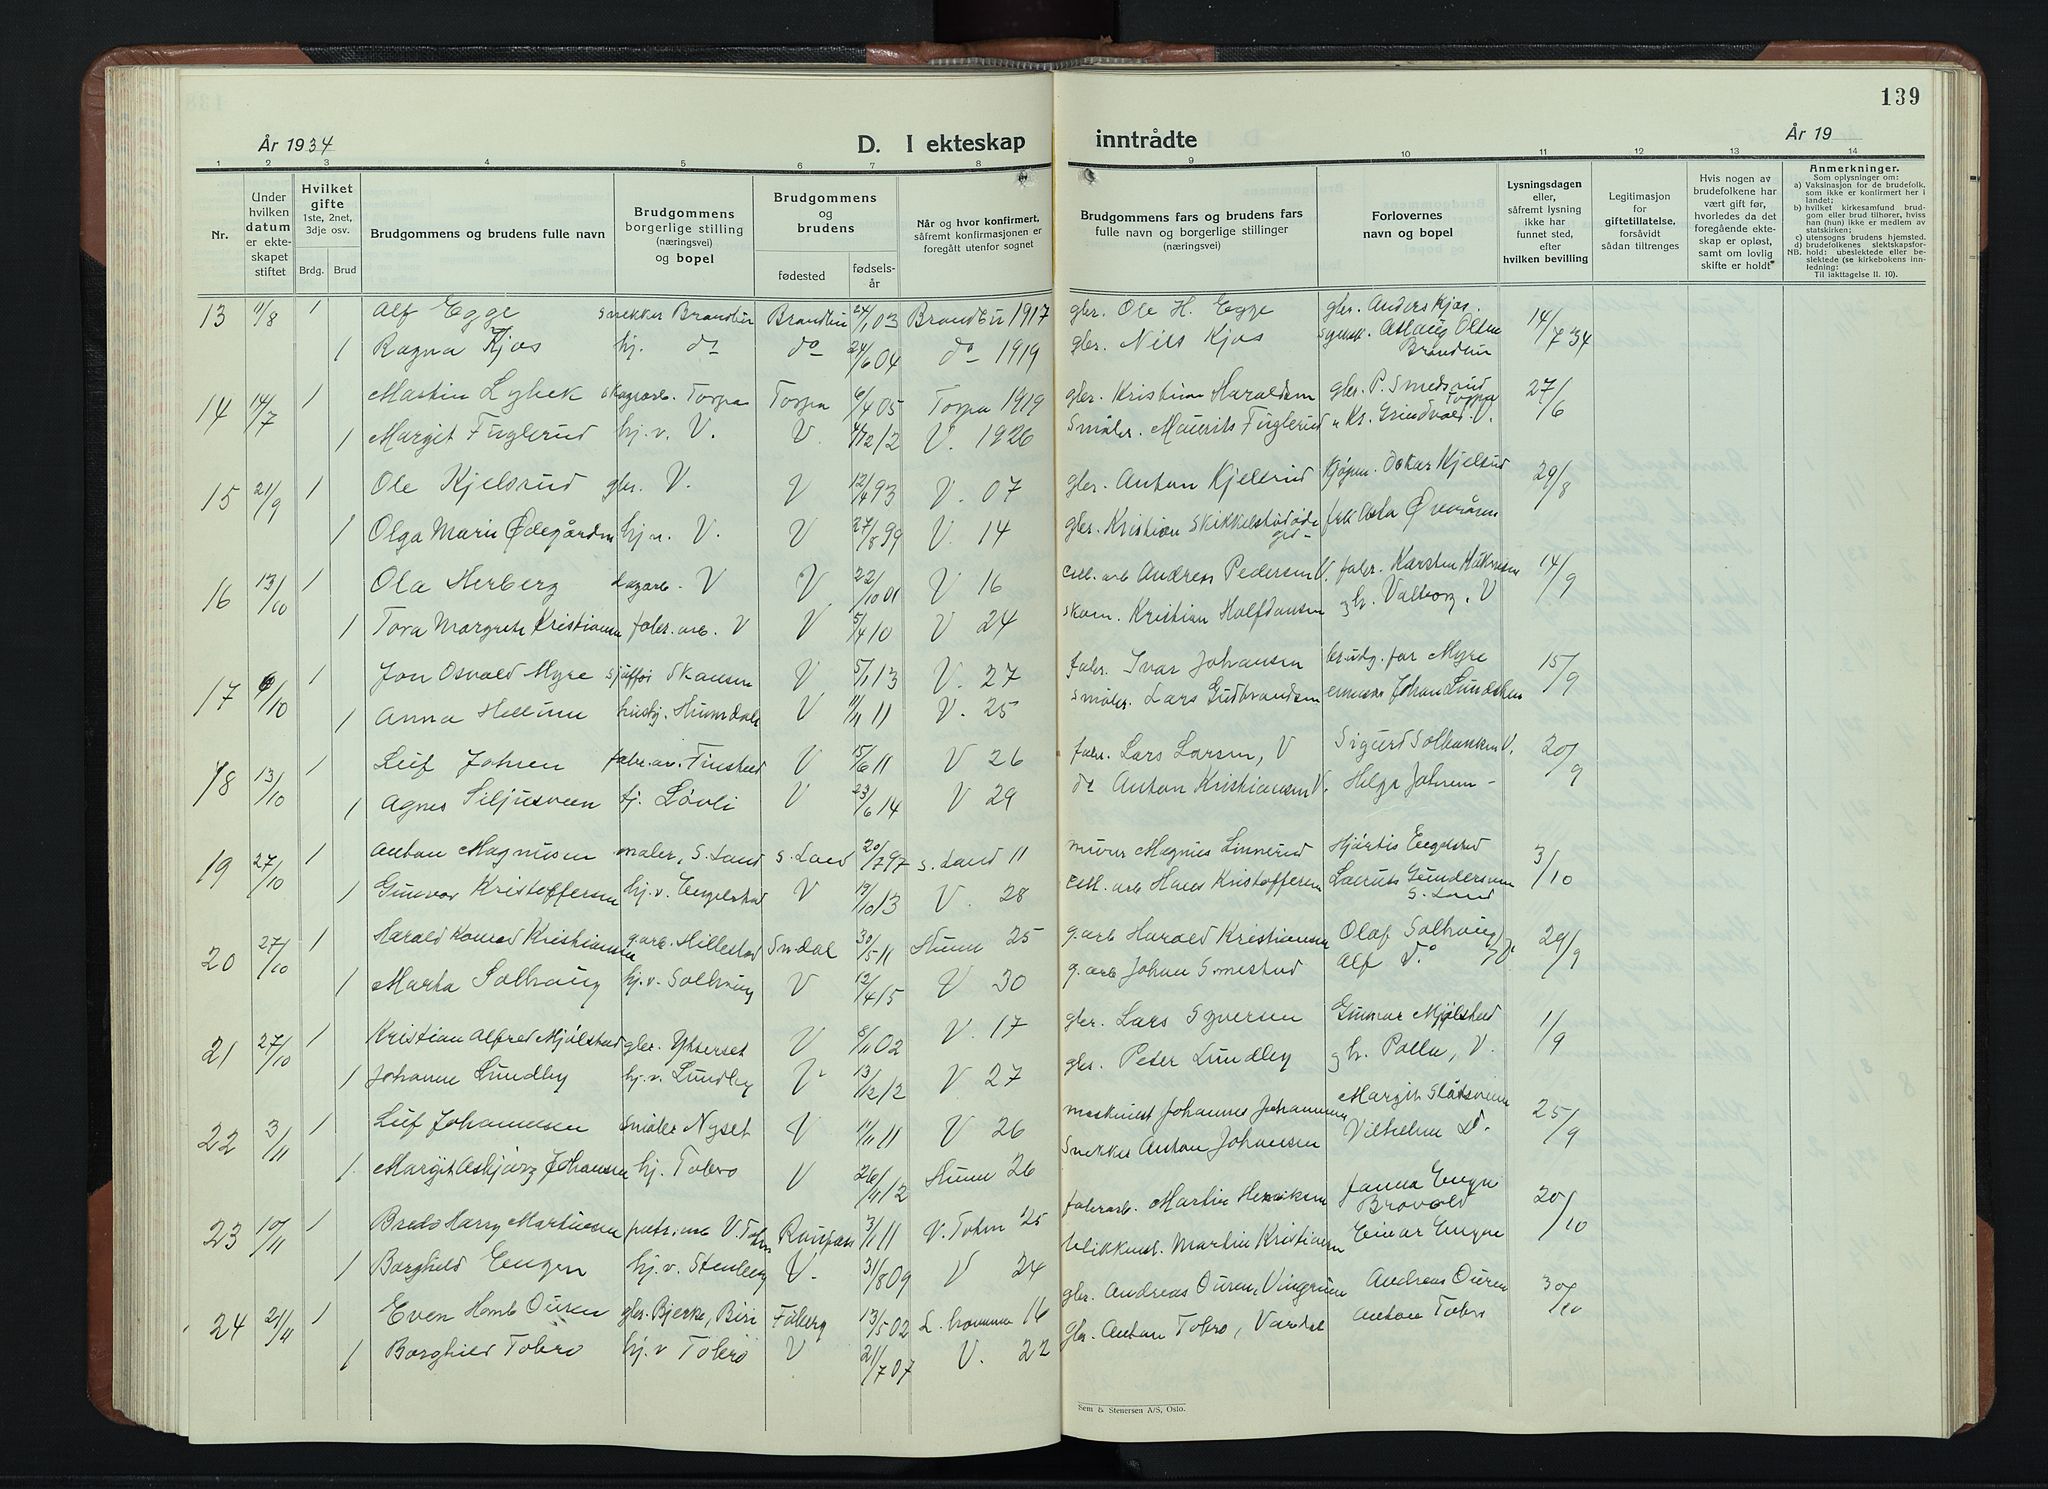 139
År 1934
D. I ekteskap
inntrådte
År 19
1 2 3 4 5 6 7 8 9 10 11 12 13 14
Nr.
Under hvilken datum er ekteskapet stiftet
Hvilket gifte 1ste, 2net, 3dje osv.
Brdg. Brud
Brudgommens og brudens fulle navn
Brudgommens borgerlige stilling (næringsvei) og bopel
Brudgommens og brudens
fødested
fødselsår
Når og hvor konfirmert, såfremt konfirmasjonen er foregått utenfor sognet
Brudgommens fars og brudens fars fulle navn og borgerlige stillinger (næringsvei)
Forlovernes navn og bopel
Lysningsdagen eller, såfremt lysning ikke har funnet sted, efter hvilken bevilling
Legitimasjon for giftetillatelse, forsåvidt sådan tiltrenges
Hvis nogen av brudefolkene har vært gift før, hvorledes da det foregående ekteskap er opløst, samt om lovlig skifte er holdt
Anmerkninger.
Som oplysninger om:
a) Vaksinasjon for de brudefolk, som ikke er konfirmert her i landet;
b) hvilket kirkesamfund brudgom eller brud tilhører, hviss han (hun) ikke er medlem av statskirken;
c) utensogns brudens hjemsted.
d) brudefolkenes slektskapsforhold: ubeslektede eller beslektede (se kirkebokens innledning:
NB. Til iakttagelse II. 10).
13 11/8 1 Alf Egge snekker Brandbu Brandbu 24/1 03 Brandbu 1917 gbr. Ole H. Egge gbr. Anders Kjos. 14/7 34
1 Ragna Kjos hj. do do 24/6 04 do 1919 gbr. Nils Kjos Aslaug Olsen Brandbu
14 14/7 1 Martin Lybek skogsarb. Torpa Torpa 6/4 05 Torpa 1919 gbr. Kristian Haraldsen gbr. P. Smedsrud Torpa 27/6
1 Margit Fuglerud hj.v. V. V. 4/12 12 V. 1926 Småbr. Maurits Fuglerud " Kr. Grindvold V.
15 21/9 1 Ole Kjelsrud gbr. V. V 12/4 93 V. 07 gbr. Anton Kjelsrud Kjøpm. Oskar Kjelsrud 29/8
1 Olga Marie Ødegården hj.v. V. V 27/8 99 V. 14 gbr. Kristian Skikkelstadødegd- frk Asta Øveråsen
16 13/10 1 Ola Herberg dagarb. V V 22/10 01 V 16 cell. arb Andreas Pedersen V. fabr. Karsten Håkensen 14/9
1 Tora Margrete Kristiansen fabr. arb. V V 5/4 10 V 24 skom. Kristian Halfdansen og h. Valborg. V
17 6/10 1 Jon Osvald Myre sjåffør Skansen V 5/1 13 V. 27 fabr. Ivar Johansen brudg. far Myre 15/9
1 Anna Hellum husbj. Hunndalen V 11/11 11 V. 25 småbr. Lars Gudbrandsen Johan Lundsbak
18 13/10 1 Leif Johnsen fabr.arb. Finstad V 15/6 11 V 26 fabr. Lars Larsen, V Sigurd Solbakken V. 20/9
1 Agnes Siljusveen hj. Løvli V 23/6 14 V 29 do Anton Kristiansen V. Helga Johnsen -
19 27/10 1 Anton Magnusen maler, S. Land S. Land 20/7 97 S. Land 11 murer Magnus Linnerud Hjørdis Engelstad 3/10
1 Gunvor Kristoffersen hj.v. Engelstad V 19/10 13 V. 28 cell. arb Hans Kristoffersen Laurits Gundersen S. Land
20 27/10 1 Harald Konrad Kristiansen g.arb. Hillestad Sn.dal 30/5 11 Hunn 25 g.arb Harald Kristiansen Olaf Solhaug 29/9
1 Marta Solhaug hj.v. Solhaug V 12/4 15 V 30 g.arb Johan Smestad Alf Do
21 27/10 1 Kristian Alfred Mjølstad gbr. Ytterset V 8/11 02 V. 17 gbr. Lars Syversen Gunnar Mjølstad 1/9
1 Johanne Lundby hj.v. Lundby V 13/12 12 V 27 gbr. Peter Lundby og h. Palla, V.
22 3/11 1 Leif Johannesen småbr Nyset V 11/11 11 V 26 maskinist Johannes Johannesen Margit Slåtsveen 25/9
1 Margit Asbjørg Johansen hj. Tobro V 26/4 12 Hunn 26 Snekker Anton Johansen Vilhelm Do.
23 10/11 1 Harry Martinsen V. Toten Raufoss 3/1 11 V. Toten 25 fabrarb. Martin Henriksen Janna Engen Brovold 20/10
1 Borghild Engen hj.v. Stenberg V. 31/8 09 V 24 blikkensl. Martin Kristiansen Einar Engen
24 21/11 1 Even Homb Ouren gbr. Bjerke, Biri Fåberg 13/5 02 L.hammer 16 gbr. Andreas Ouren, Vingrom Andreas Ouren 30/10
1 Borghild Tobro hj.v Tobro V 21/7 07 V. 22 Gbr. Anton Tobro, Vardal Anton Tobro
Sem & Stenersen A/S, Oslo.